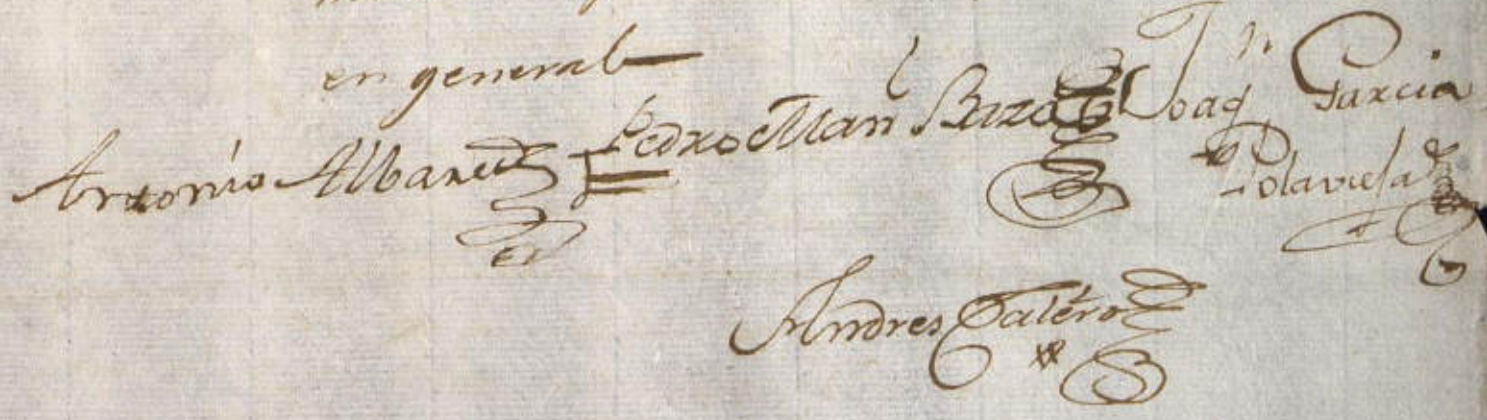 en general
Antonio Albarez Pedro Man Bazo Joaqn Garcia
Polavieja
Andres Calero